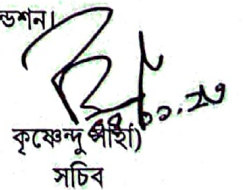 ন্ডশন।
কৃষ্ণেন্দু সাহা)
সচিব